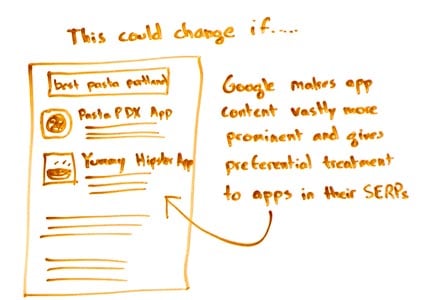 This could change if.....
best pasta portland
Pasta PDX App
Yummy Hipster App
Google makes app
content vastly more
prominent and gives
preferential treatment
to apps in their SERPs